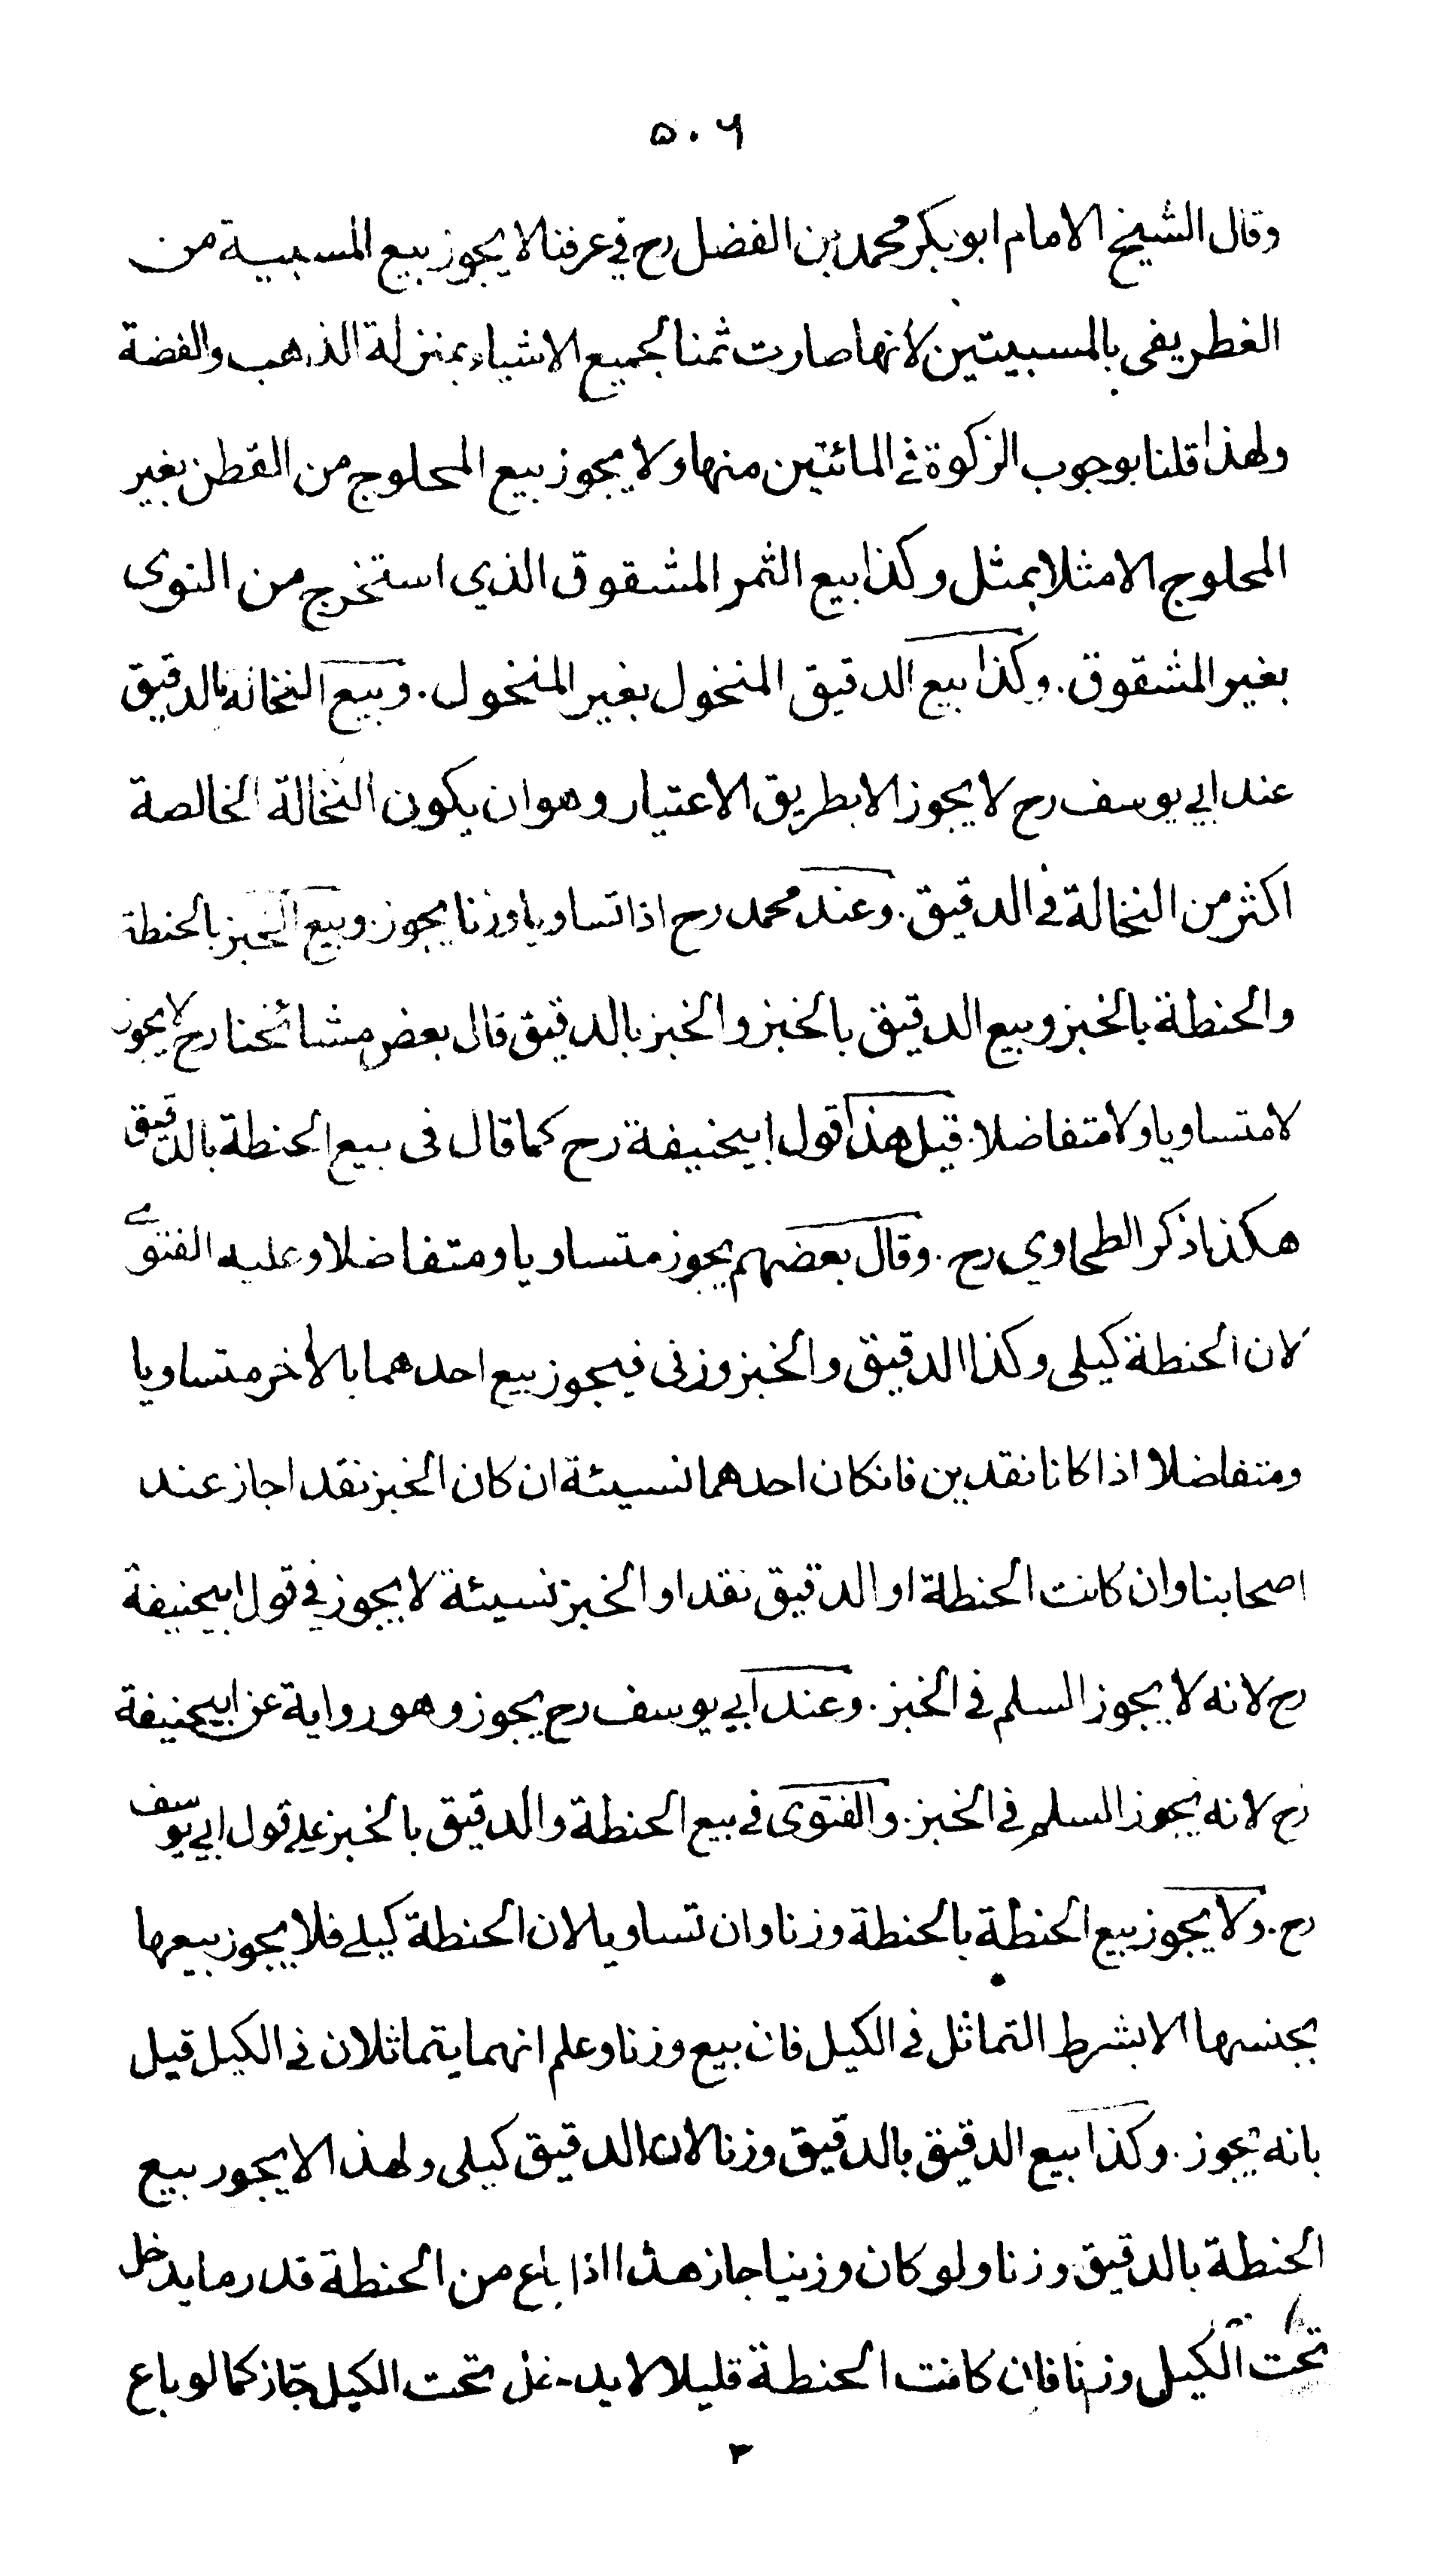 ۵۰۶
وقال الشيخ الامام ابو بكر محمد بن الفضل رح في عرفنا لا يجوز بيع المسبية من
الغطريفى بالمسبيتين لانها صارت ثمنا لجميع الاشياء بمنزلة الذهب والفضة
ولهذا قلنا بوجوب الزكوة في المائتين منها ولا يجوز بيع المحلوج من القطن بغير
المحلوج الا مثلا بمثل وكذا بيع الثمر المشقوق الذي استخرج من النوى
بغير المشقوق . وكذا بيع الدقيق المنخول بغير المنخول . وبيع النخالة بالدقيق
عند ابي يوسف رح لا يجوز الا بطريق الاعتبار وهو ان يكون النخالة الخالصة
اكثر من النخالة في الدقيق . وعند محمد رح اذا تساويا وزنا يجوز . وبيع الخبز بالحنطة
والحنطة بالخبز وبيع الدقيق بالخبز والخبز بالدقيق قال بعض مشائخنا رح لا يجوز
لا متساويا ولا متفاضلا . قيل هذا قول ابيحنيفة رح كما قال فى بيع الحنطة بالدقيق
هكذا ذكر الطحاوي رح . وقال بعضهم يجوز متساويا ومتفاضلا وعليه الفتوى
لان الحنطة كيلى وكذا الدقيق والخبز وزنى فيجوز بيع احدهما بالأخر متساويا
ومتفاضلا اذا كانا نقدين فانكان احدهما نسيئة ان كان الخبز نقدا جاز عند
اصحابنا وان كانت الحنطة او الدقيق نقدا و الخبز نسيئة لا يجوز في قول ابيحنيفة
رح لانه لا يجوز السلم في الخبز . وعند ابي يوسف رح يجوز وهو رواية عن ابيحنيفة
رح لانه يجوز السلم في الخبز . والفتوى في بيع الحنطة والدقيق بالخبز على قول ابي يوسف
رح . ولا يجوز بيع الحنطة بالحنطة وزنا وان تساويا لان الحنطة كيلى فلا يجوز بيعها
بجنسها الا بشرط التماثل في الكيل فان بيع وزنا وعلم انهما يتماثلان في الكيل قيل
بانه يجوز . وكذا بيع الدقيق بالدقيق وزنا لان الدقيق كيلى ولهذا لا يجور بيع
الحنطة بالدقيق وزنا ولو كان وزنيا جاز هذا اذا باع من الحنطة قدر ما يدخل
تحت الكيل وزنا فان كانت الحنطة قليلا لا يدخل تحت الكيل جاز كما لو باع
۳